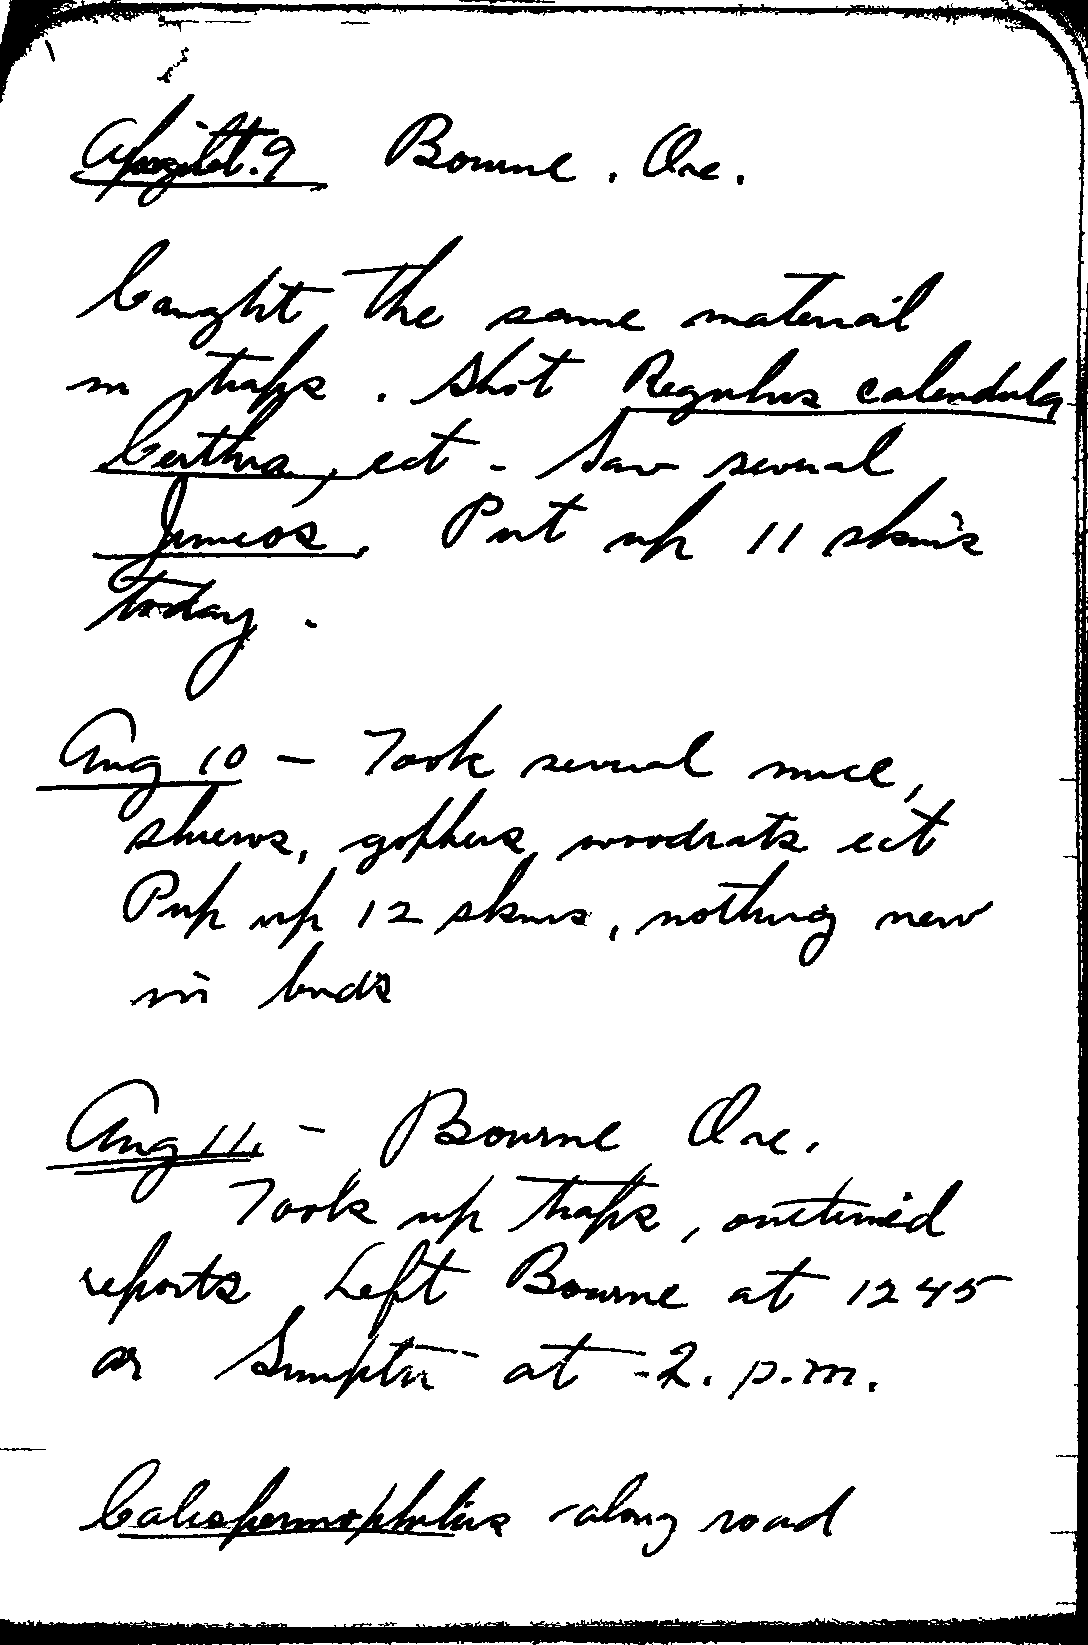 August. 9 Bourne. Ore.
Caught the same material
in traps. Shot Regulus calendula
Certhia, ect - Saw several
Juncos. Put up 11 skins
today.
Aug 10 - Took several mice,
shrews, gophers, woodrats ect
Pup up 12 skins, nothing new
in birds
Aug 11. - Bourne Ore.
Took up traps,
reports Left Bourne at 1245
ar Sumpter at -2. p.m.
Callospermophilus along road